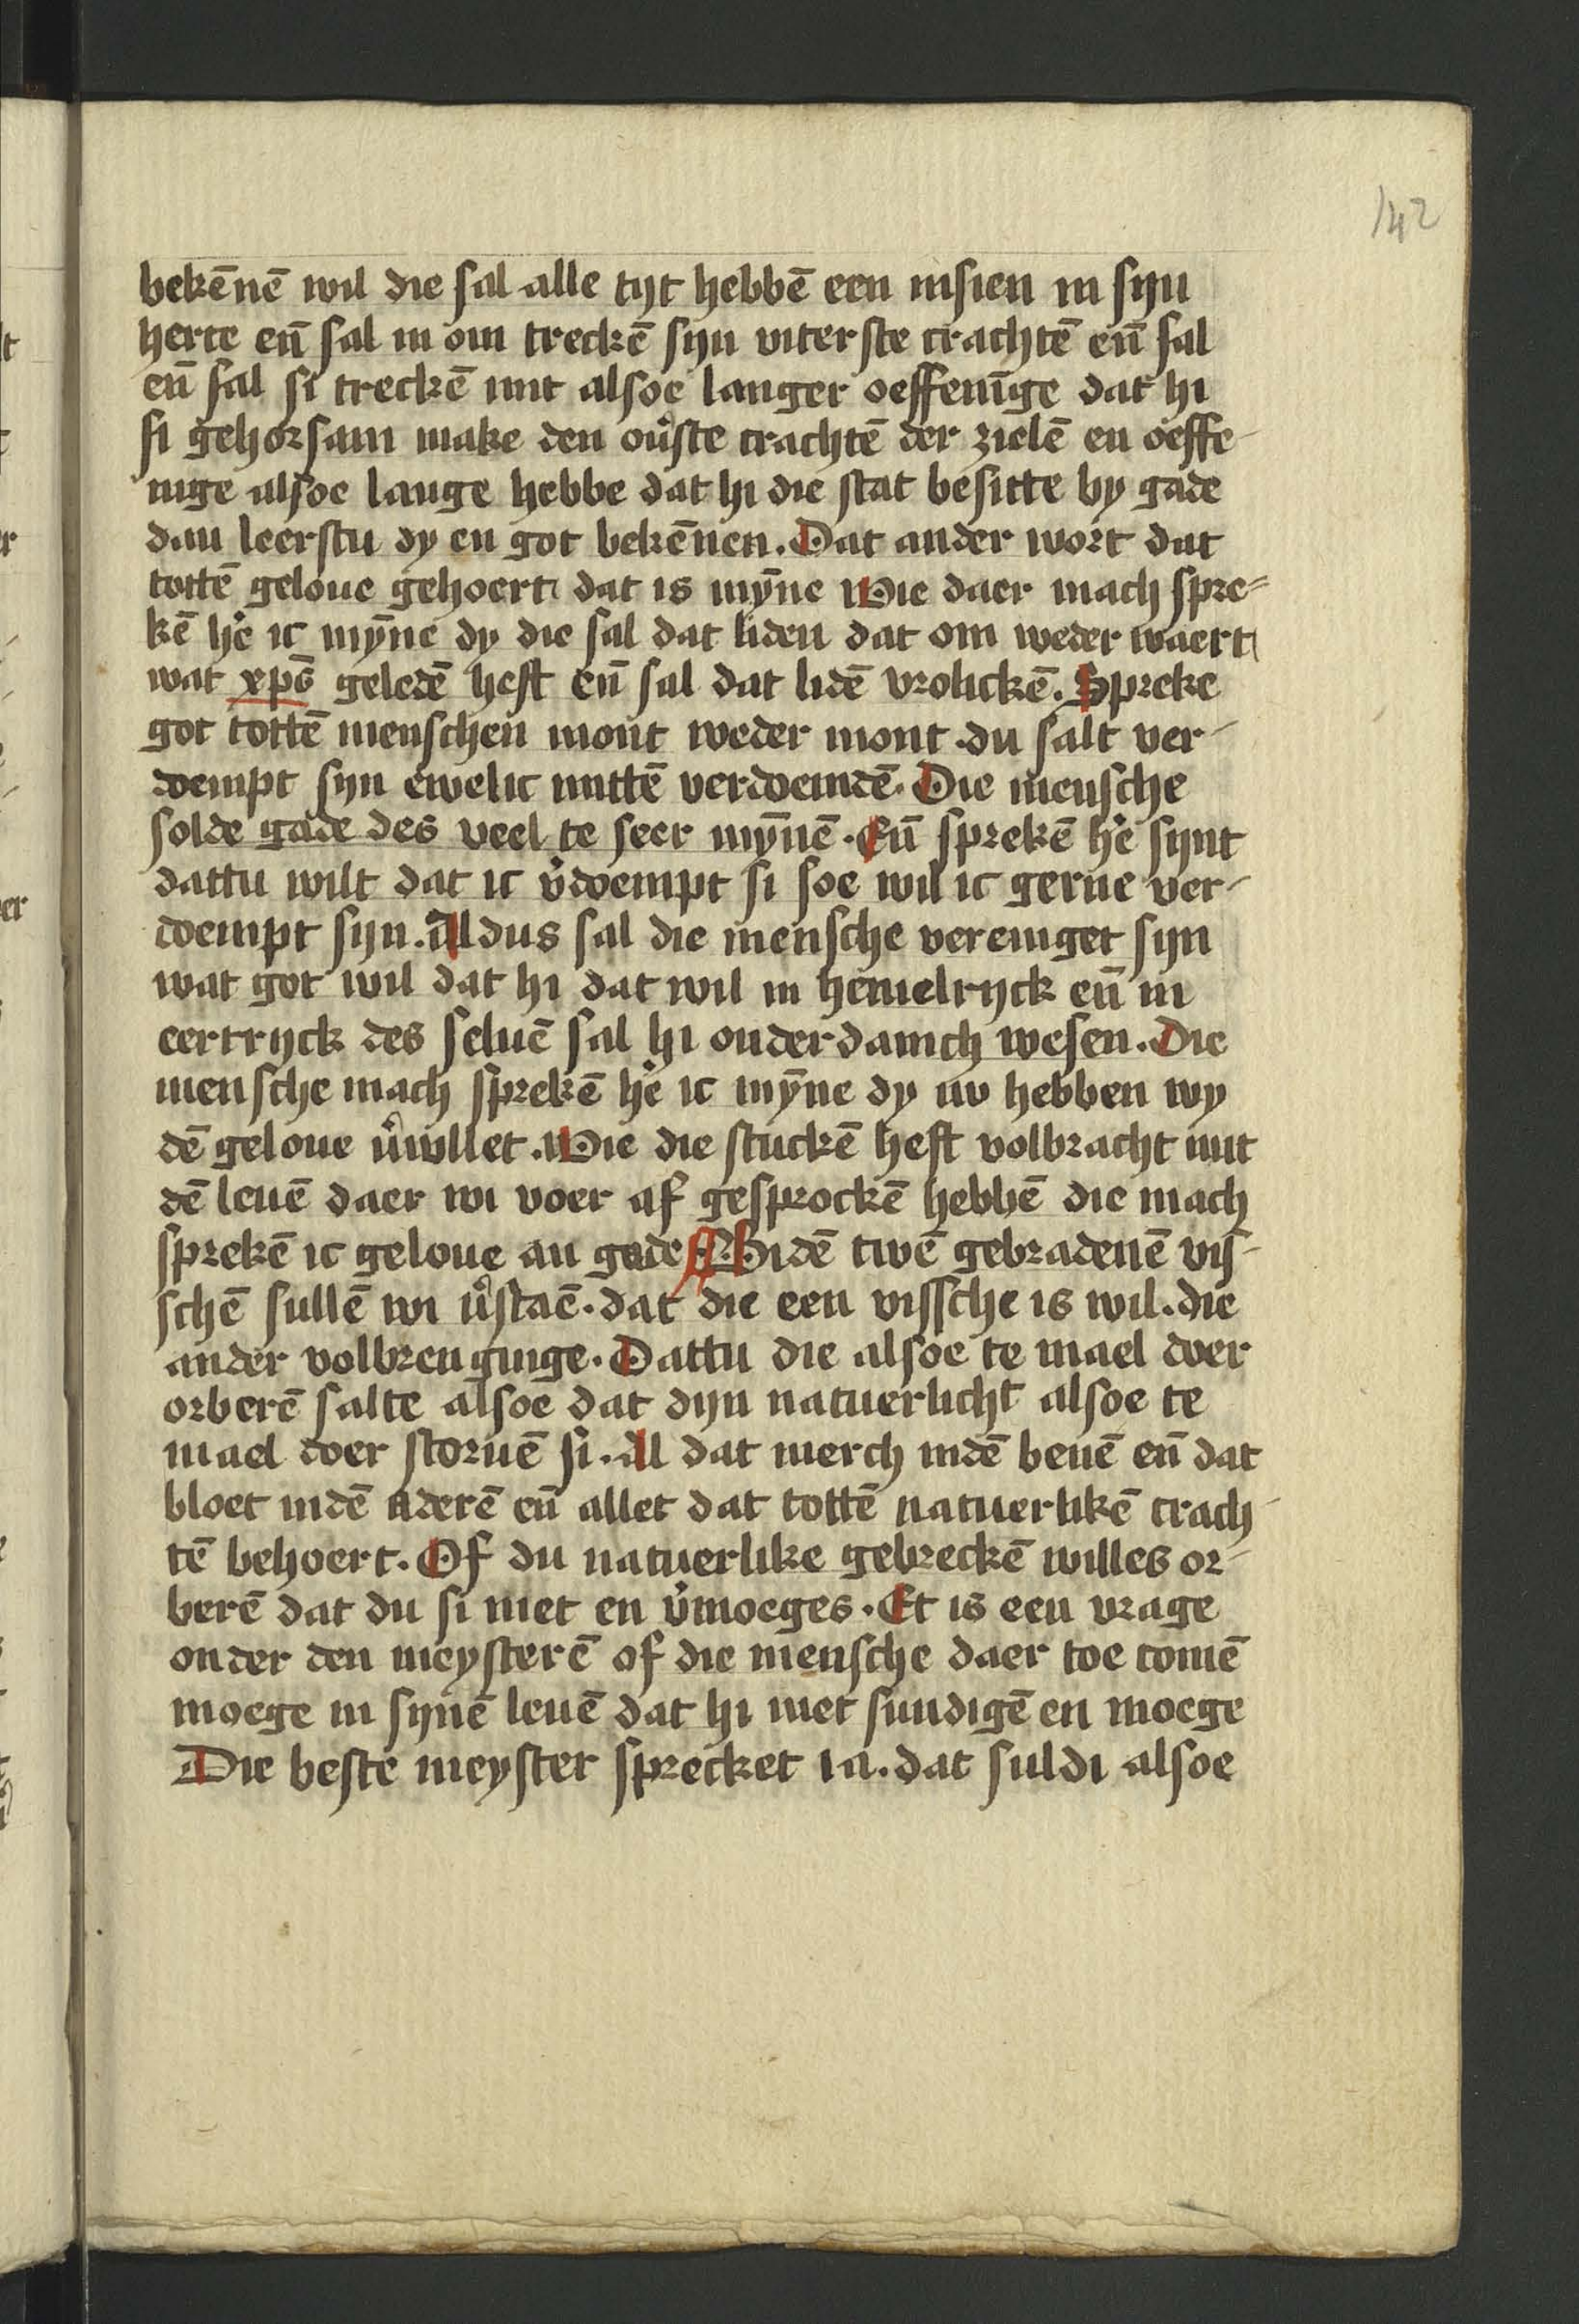 142
bekēnē wil die sal alle tijt hebbē een insien in sijn
herte eñ sal in om treckē sijn uiterste crachtē eñ sal
eñ sal si treckē mit alsoe langer oeffenīge dat hi
si gehorsam make den ou̾ste crachtē der zielē en oeffe-
nige alsoe lange hebbe dat hi die stat besitte by gade
dan leerstu dy en got bekēnen. Dat ander wort dat
tottē geloue gehoert dat is mȳne Wie daer mach spre=
kē he̾ ic mȳne dy die sal dat liden dat om weder waert
wat xp̄s geledē heft eñ sal dat lidē vrolickē. Spreke
got tottē menschen mont weder mont du salt ver-
doempt sijn ewelic mittē verdoemdē. Die mensche
solde gade des veel te seer mȳnē. Eñ sprekē he̾ sijnt
dattu wilt dat ic v̾doempt si soe wil ic gerne ver-
doempt sijn. Aldus sal die mensche vereniget sijn
wat got wil dat hi dat wil in hemelrijck eñ in
eertrijck des seluē sal hi onderdanich wesen. Die
mensche mach sprekē he̾ ic mȳne dy nv hebben wy
dē geloue v̾wllet. Wie die stuckē heft volbracht mit
dē leuē daer wi voer af gesprockē hebbē die mach
sprekē ic geloue an gade ¶ Bidē twē gebradenē vis-
schē sullē wi v̾staē. dat die een vissche is wil. die
ander volbrenginge. Dattu die alsoe te mael doer
orberē salte alsoe dat dijn natuerlicht alsoe te
mael doer storuē si. Al dat merch indē benē eñ dat
bloet indē aderē eñ allet dat tottē natuerlikē crach-
tē behoert. Of du natuerlike gebreckē willes or-
berē dat du si niet en v̾moeges. Et is een vrage
onder den meysterē of die mensche daer toe comē
moege in sijnē leuē dat hi niet sundigē en moege
Die beste meyster sprecket ia. dat suldi alsoe